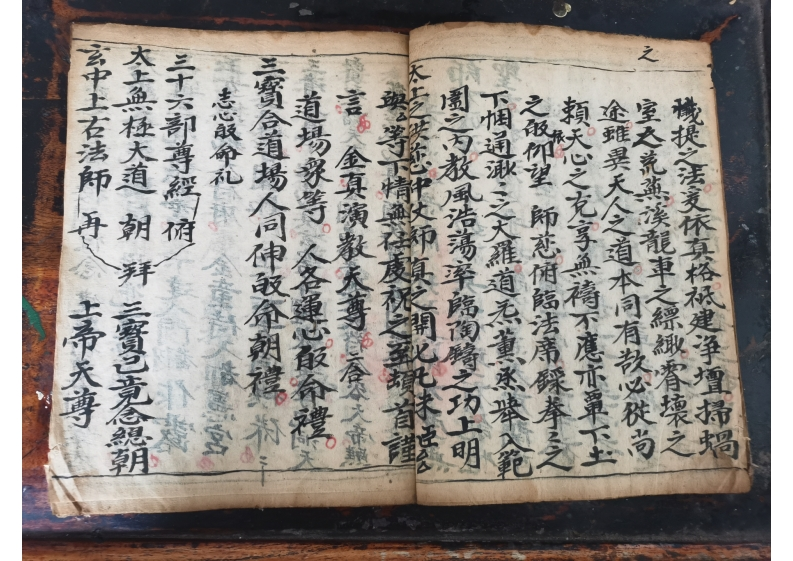 之
機提之法爰依真格祗建淨壇掃蝸
室之荒蕪溪龍車之縹緲霄壤之
途雖異天人之道本同有欲必從尚
賴天心之克享無禱不應亦單下土
之皈依仰望 師慈俯臨法席
下悃通 之大羅道炁薰烝舉入範
圍之內教風浩蕩率臨陶鑄之功上明
太上之 慈中 師真之開化凡未
等下情無任虔祝之至頓首謹
言 金真演教天尊
道場眾等 人各運心皈命禮
三寶合道場人同伸皈命朝禮
志心皈命礼
三十六部尊經 俯
太上無極大道 朝 拜 三寶已竟念總朝
玄中上古法師 再 上帝天尊